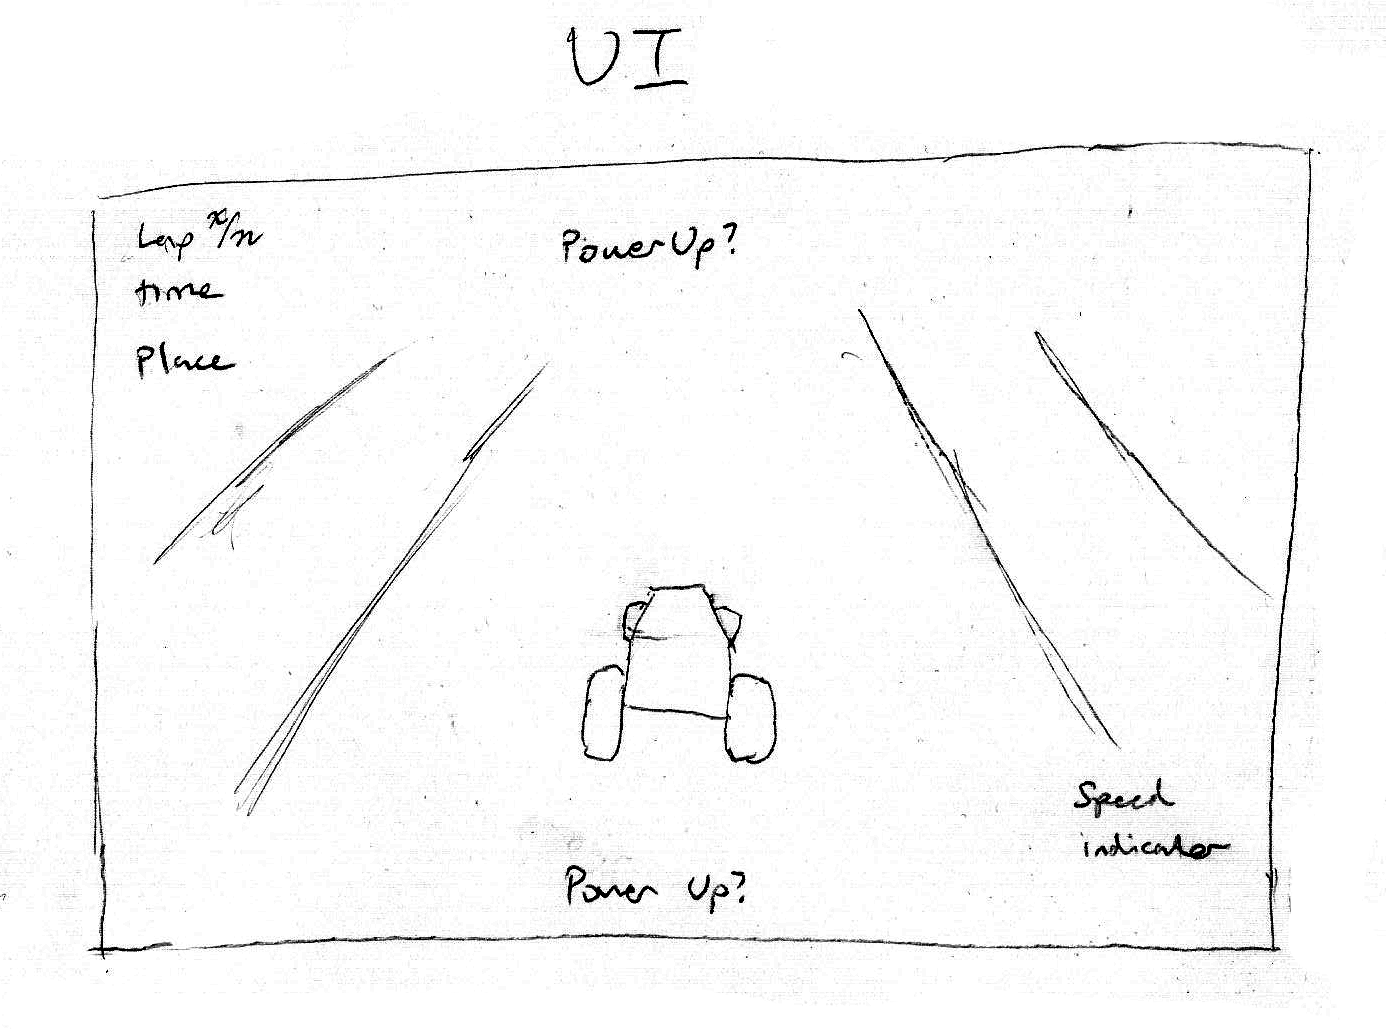 UI
Lap x/n
time
Place
Power Up?
Speed
indicator
Power Up?